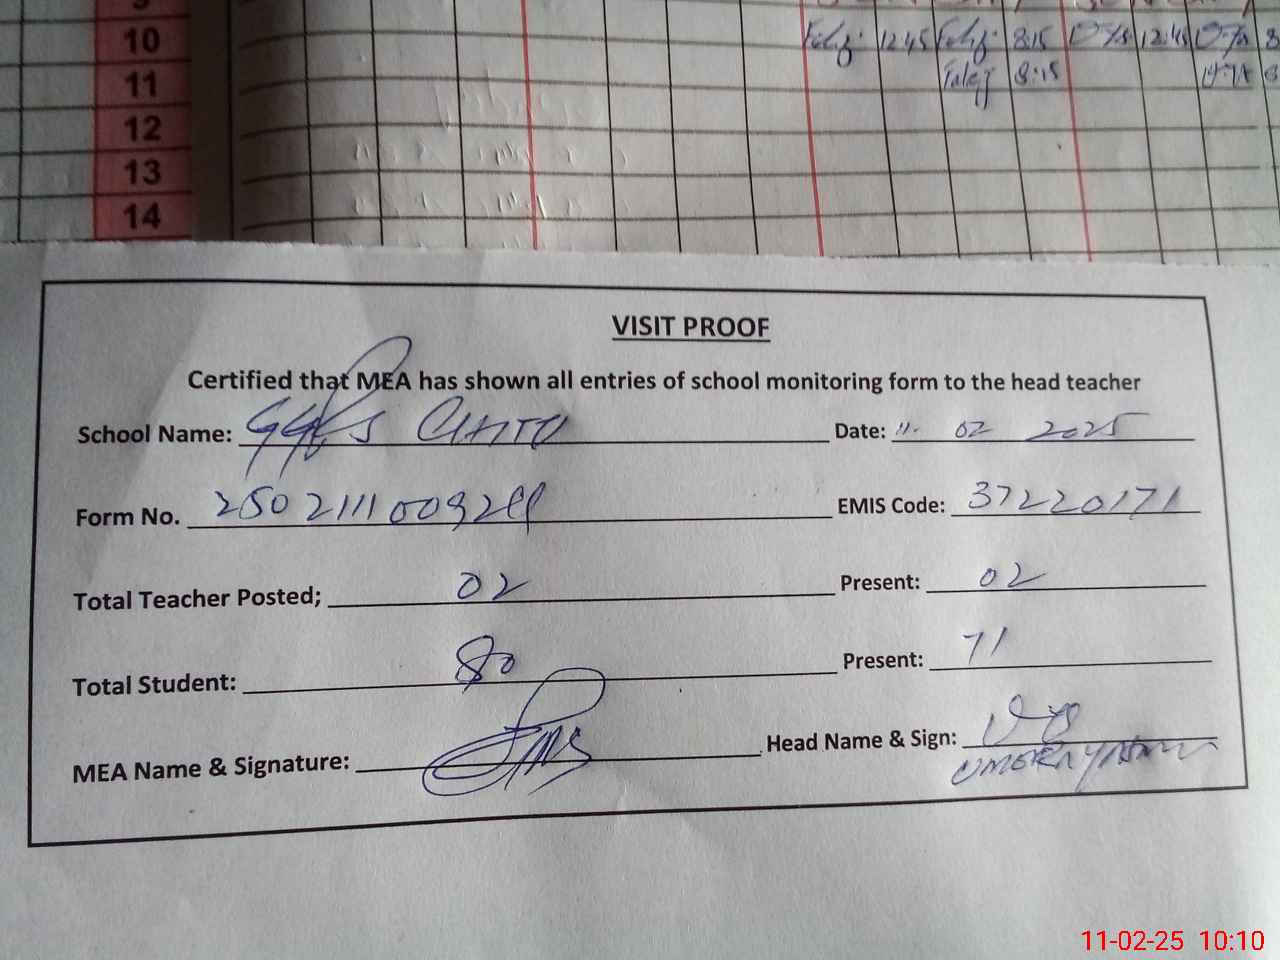 10
11
12
13
14
12:45 8:15 12:45
8:15
VISIT PROOF
Certified that MEA has shown all entries of school monitoring form to the head teacher
School Name: Date: 11. 02 2025
Form No. EMIS Code: 37220171
Total Teacher Posted; 02 Present: 02
Total Student: 80 Present: 71
MEA Name & Signature: Head Name & Sign:
11-02-25 10:10